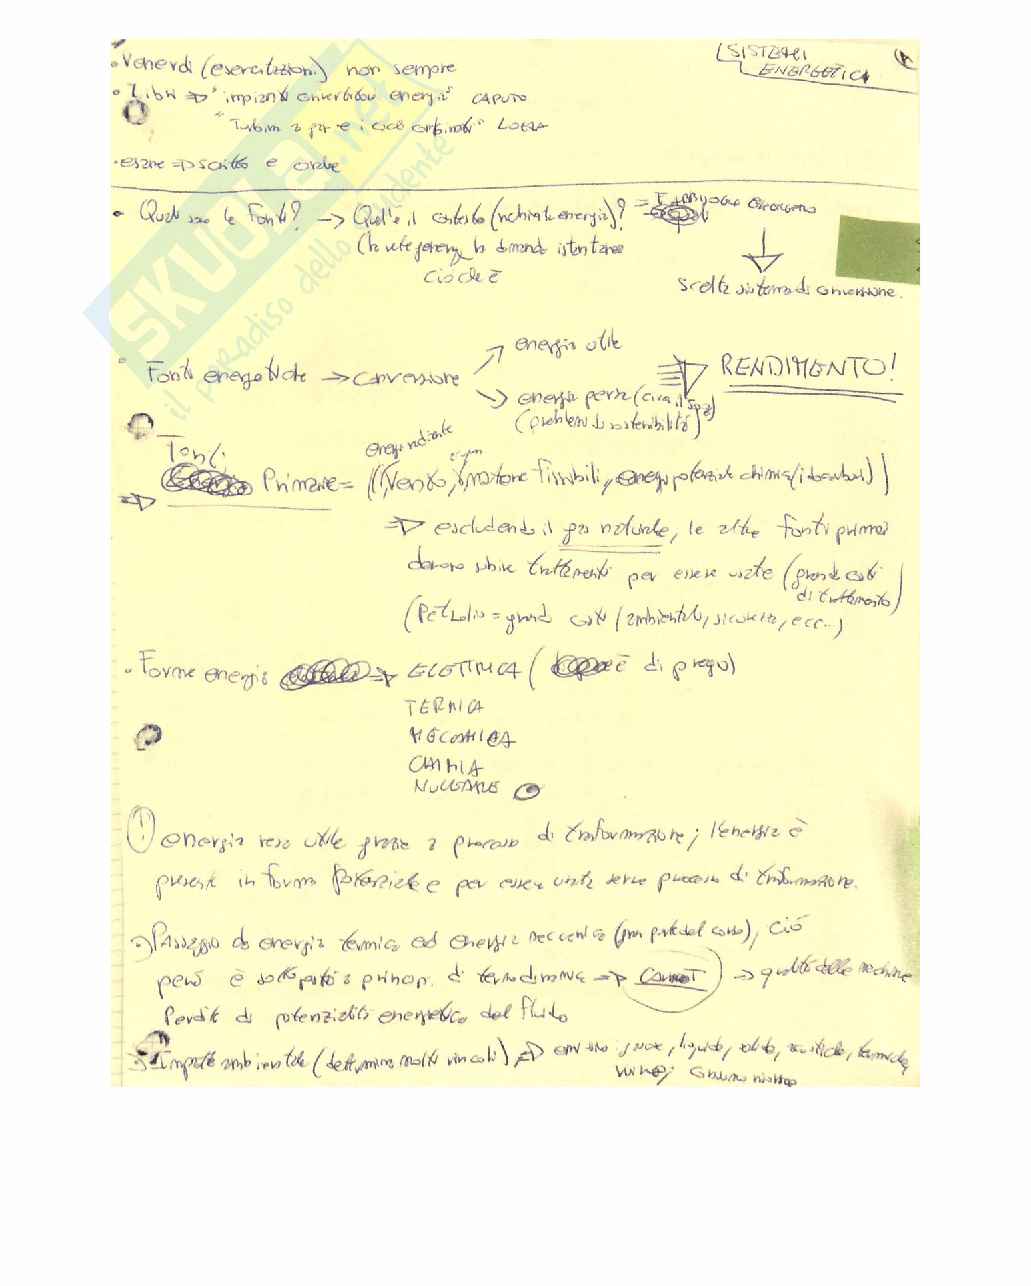 SISTEMI
ENERGETICI
• Venerdì (esercitazioni) non sempre
• Libri => "impianti convertitori energia" CAPUTO
"Turbine a gas e i cicli combinati" LOZZA
• esame => scritto e orale
• Quali sono le Fonti? → Qual'è il contesto (richieste energia)? = Fabbisogno
la domanda istantanea
cioè che è
scelta sistema di conversione.
• Fonti energetiche → conversione
energia utile
energia persa
(problemi di sostenibilità)
RENDIMENTO!
Fonti
Primarie = ( , vento, , materie fissibili, energia potenziale chimica/idrocarburi)
=> escludendo il gas naturale, le altre fonti primarie
devono subire trattamenti per essere usate (grandi costi
di trattamento)
(Petrolio = grandi costi (ambientali, sicurezza, ecc...)
• Forme energia => ELETTRICA ( è di pregio)
TERMICA
MECCANICA
CHIMICA
NUCLEARE
! energia resa utile grazie a processo di trasformazione; l'energia è
presente in forma potenziale e per essere usata serve processo di trasformazione.
Passaggio da energia termica ad energia meccanica (gran parte del corso), ciò
però è sottoposto a principi di termodinamica => CARNOT → qualità delle macchine
Perdite di potenzialità energetica del fluido
Impatto ambientale (determina molti vincoli) => gassose, liquide, solide, acustiche, termiche,